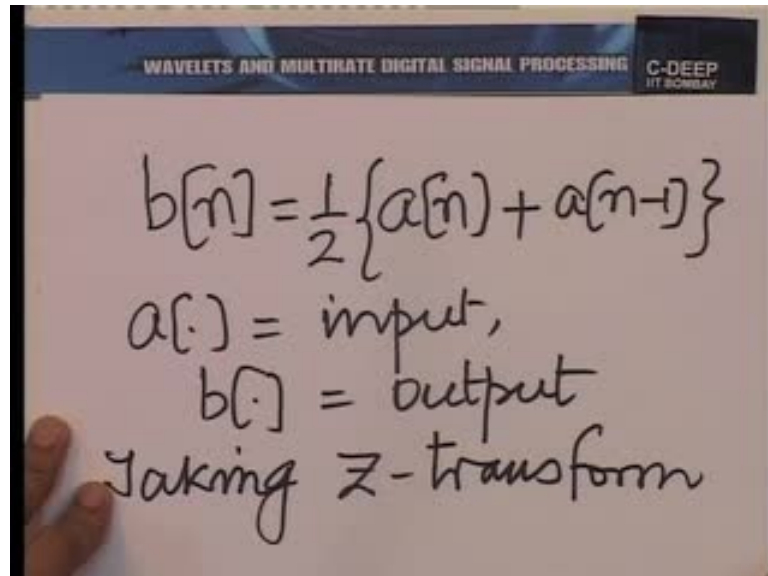 WAVELETS AND MULTIRATE DIGITAL SIGNAL PROCESSING
C-DEEP
IIT BOMBAY
b[n] = 1/2 {a[n] + a[n-1]}
a[·] = input,
b[·] = output
Taking Z-transform